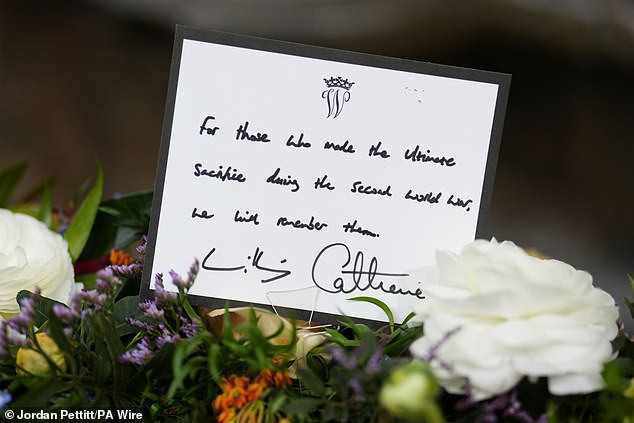 W
For those who made the ultimate
sacrifice during the Second World War,
we will remember them.
William Catherine
© Jordan Pettitt/PA Wire